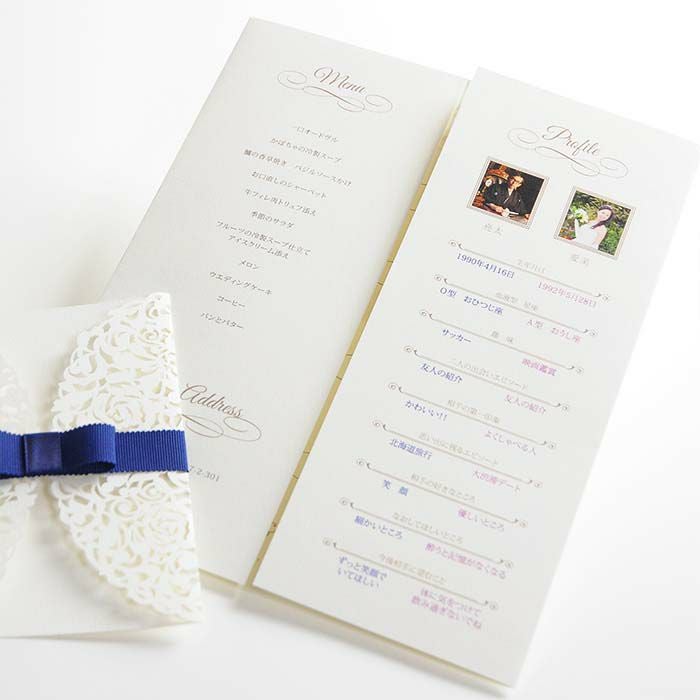 Menu
一口オードヴル
かぼちゃの冷製スープ
鯛の香草焼き バジルソースかけ
お口直しのシャーベット
牛フィレ肉トリュフ添え
季節のサラダ
フルーツの冷製スープ仕立て
アイスクリーム添え
メロン
ウエディングケーキ
コーヒー
パンとバター
Address
2-301
Profile
亮太
愛美
生年月日
1990年4月16日
1992年5月28日
血液型 星座
O型 おひつじ座
A型 おうし座
趣 味
サッカー
映画鑑賞
二人の出会いエピソード
友人の紹介
友人の紹介
相手の第一印象
かわいい!!
よくしゃべる人
思い出に残るエピソード
北海道旅行
大洪水デート
相手の好きなところ
笑 顔
優しいところ
なおしてほしいところ
細かいところ
酔うと記憶がなくなる
今後相手に望むこと
ずっと笑顔で
いてほしい
体に気をつけて
飲み過ぎないでね